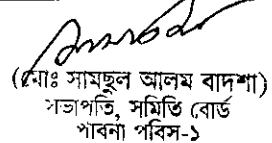 (মোঃ সামছুল আলম বাদশা)
সভাপতি, সমিতি বোর্ড
পাবনা পবিস-১